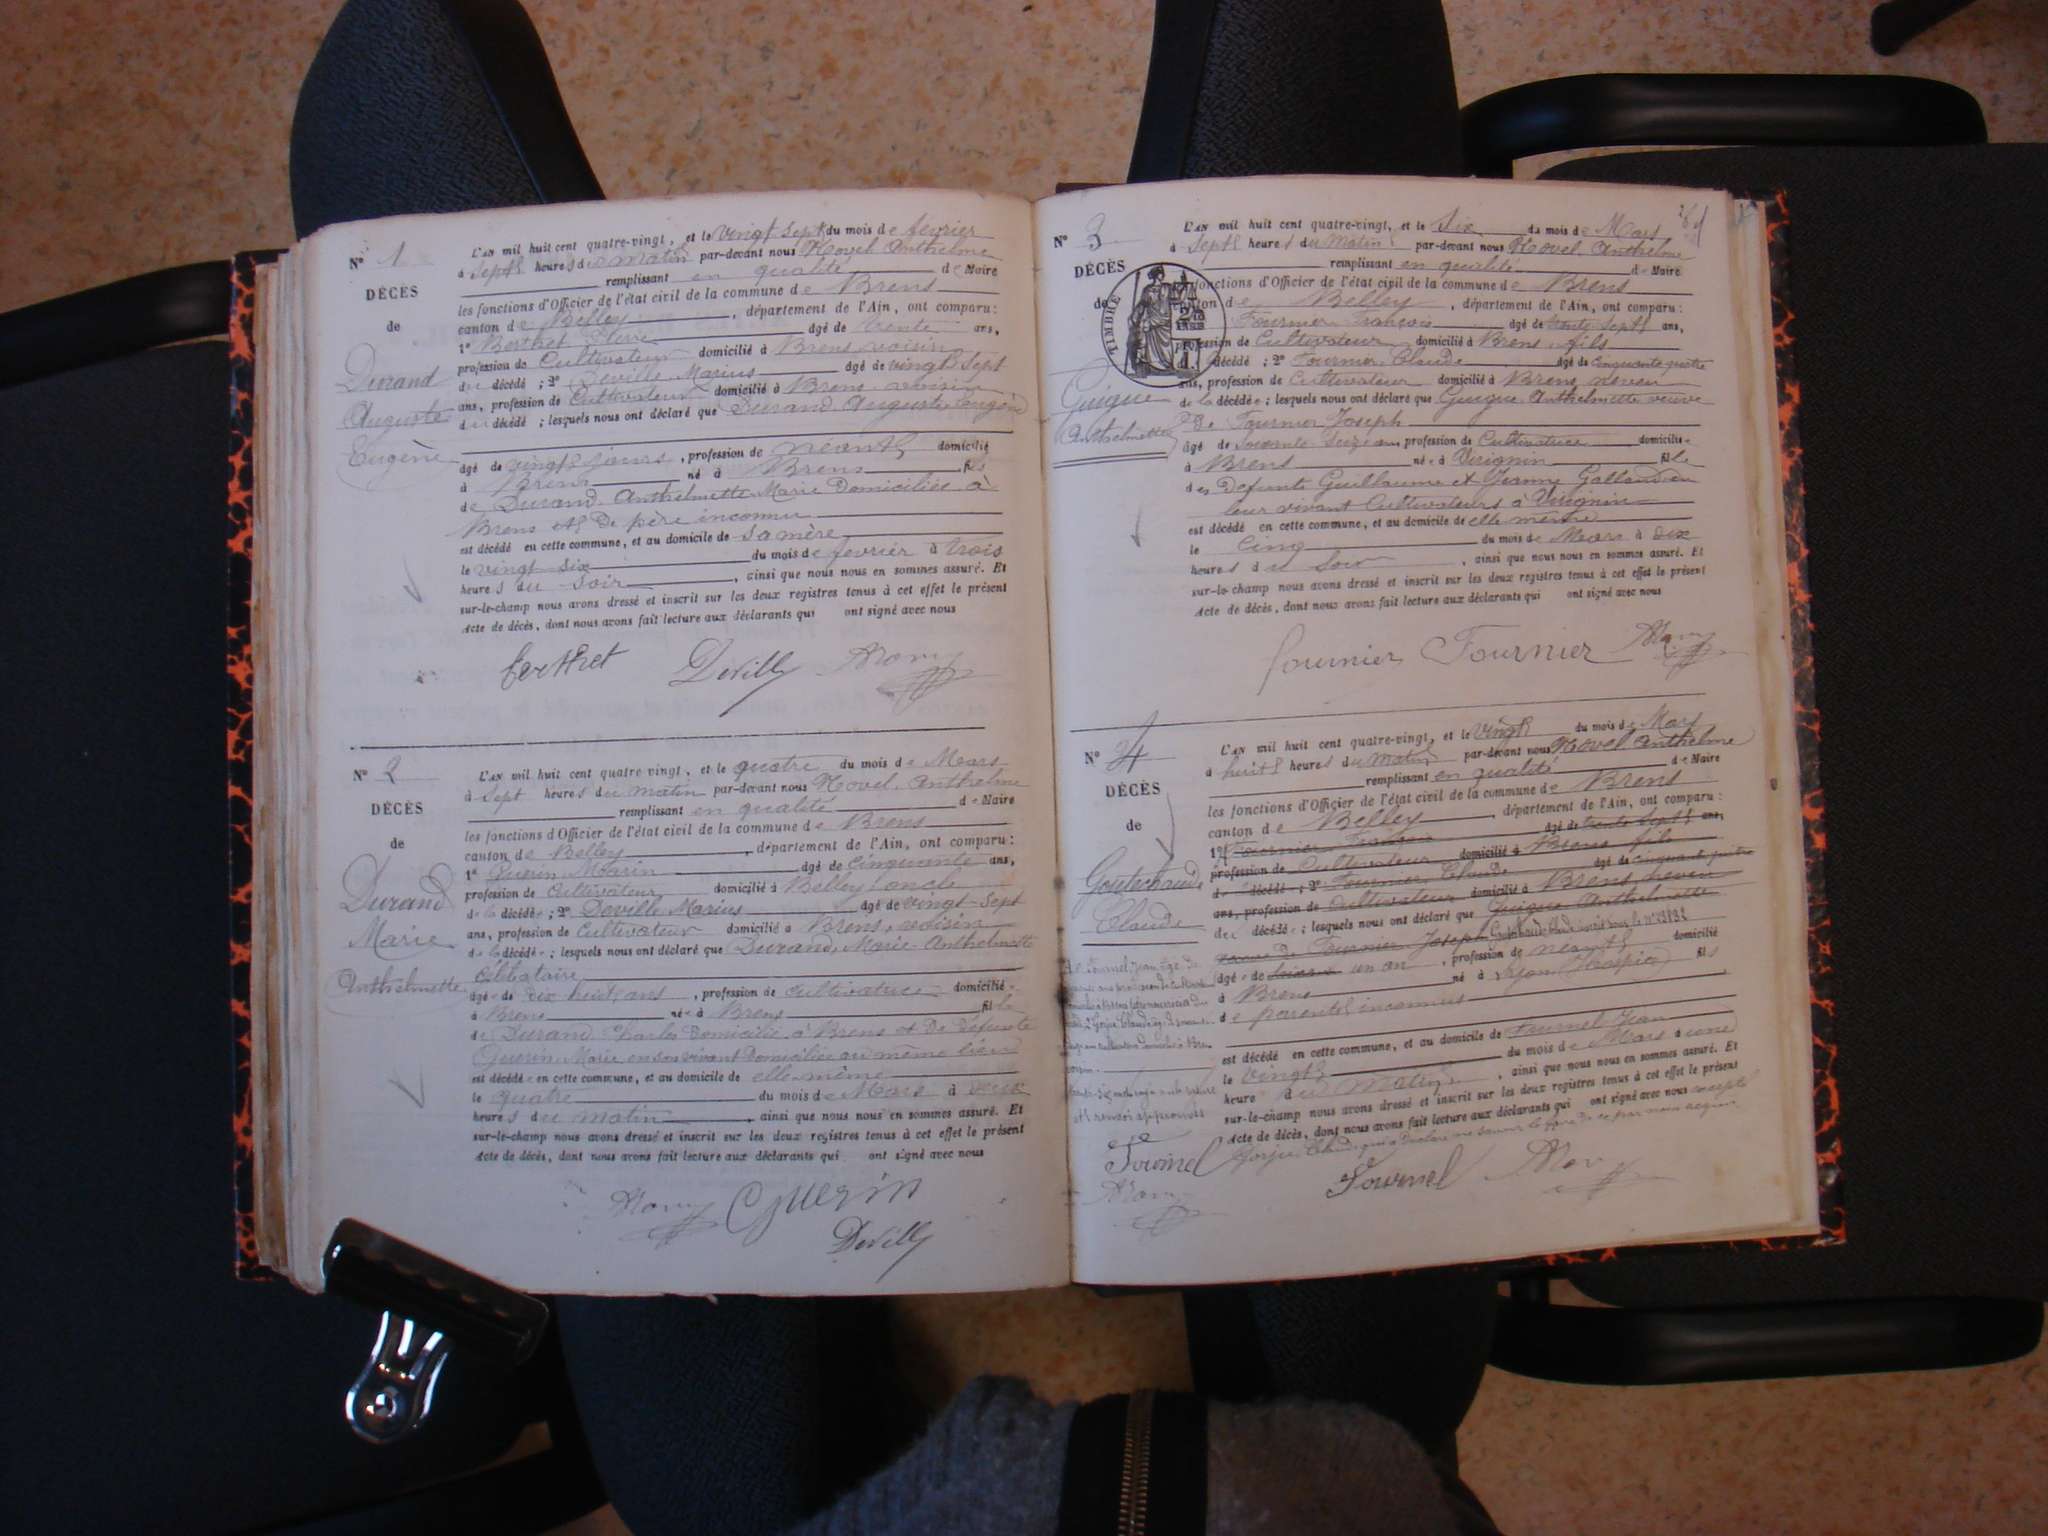 N° 1
DÉCÈS
de
Durand
Auguste
Eugène
L'AN mil huit cent quatre-vingt, et le vingt sept du mois de février
à sept heures du matin par-devant nous Anthelme
remplissant en qualité de Maire
les fonctions d'Officier de l'état civil de la commune de Brens
canton de Belley, département de l'Ain, ont comparu :
1° Berthet Pierre âgé de trente ans,
profession de Cultivateur domicilié à Brens voisin
du décédé ; 2° Deville Marius âgé de vingt sept
ans, profession de Cultivateur domicilié à Brens voisin
du décédé ; lesquels nous ont déclaré que Durand Auguste Eugène
âgé de vingt jours, profession de néant domicilié
à Brens né à Brens fils
de Durand Anthelmette Marie Domiciliée à
Brens et De père inconnu
est décédé en cette commune, et au domicile de sa mère
le vingt six du mois de février à trois
heures du soir, ainsi que nous nous en sommes assuré. Et
sur-le-champ nous avons dressé et inscrit sur les deux registres tenus à cet effet le présent
Acte de décès, dont nous avons fait lecture aux déclarants qui ont signé avec nous
Berthet Deville
N° 2
DÉCÈS
de
Durand
Marie
Anthelmette
L'AN mil huit cent quatre-vingt, et le quatre du mois de Mars
à sept heures du matin par-devant nous Anthelme
remplissant en qualité de Maire
les fonctions d'Officier de l'état civil de la commune de Brens
canton de Belley, département de l'Ain, ont comparu :
1° Guerin Marin âgé de Cinquante ans,
profession de Cultivateur domicilié à Belley oncle
de la décédée ; 2° Deville Marius âgé de vingt-sept
ans, profession de Cultivateur domicilié à Brens, voisin
de la décédée ; lesquels nous ont déclaré que Durand, Marie Anthelmette
Célibataire
âgée de dix huit ans, profession de cultivatrice domiciliée
à Brens née à Brens fille
de Durand Charles Domicilié à Brens et De défunte
Guerin Marie en son vivant Domiciliée au même lieu
est décédée en cette commune, et au domicile de elle-même
le quatre du mois de Mars à deux
heures du matin, ainsi que nous nous en sommes assuré. Et
sur-le-champ nous avons dressé et inscrit sur les deux registres tenus à cet effet le présent
Acte de décès, dont nous avons fait lecture aux déclarants qui ont signé avec nous
Guerin
Deville
N° 3
DÉCÈS
de
TIMBRE
Guigue
Anthelmette
L'AN mil huit cent quatre-vingt, et le Six du mois de Mars
à sept heures du matin par-devant nous Anthelme
remplissant en qualité de Maire
fonctions d'Officier de l'état civil de la commune de Brens
canton de Belley, département de l'Ain, ont comparu :
Fournier François âgé de trente sept ans,
profession de Cultivateur domicilié à Brens fils
décédé ; 2° Fournier Claude âgé de cinquante quatre
ans, profession de Cultivateur domicilié à Brens neveu
de la décédée ; lesquels nous ont déclaré que Guigue Anthelmette veuve
De Fournier Joseph
âgé de soixante seize ans profession de Cultivatrice domiciliée
à Brens née à Virignin fille
des Defunts Guillaume et Jeanne Galland en
leur vivant Cultivateurs à Virignin
est décédé en cette commune, et au domicile de elle même
le cinq du mois de Mars à dix
heures du soir, ainsi que nous nous en sommes assuré. Et
sur-le-champ nous avons dressé et inscrit sur les deux registres tenus à cet effet le présent
Acte de décès, dont nous avons fait lecture aux déclarants qui ont signé avec nous
fournier Fournier
N° 4
DÉCÈS
de
Claude
L'AN mil huit cent quatre-vingt, et le vingt du mois de Mars
à huit heures du matin par-devant nous Anthelme
remplissant en qualité de Maire
les fonctions d'Officier de l'état civil de la commune de Brens
canton de Belley, département de l'Ain, ont comparu :
1° Fournier François âgé de trente sept ans,
profession de Cultivateur domicilié à Brens fils
de décédé ; 2° Fournier Claude âgé de cinquante quatre
ans, profession de Cultivateur domicilié à Brens neveu
de décédé ; lesquels nous ont déclaré que Guigue Anthelmette
veuve de Fournier Joseph
âgé de un an, profession de néant domicilié
à Brens né à Lyon (Hospice) fils
de parents inconnus
est décédé en cette commune, et au domicile de Fournel Jean
le vingt du mois de Mars à une
heure du matin, ainsi que nous nous en sommes assuré. Et
sur-le-champ nous avons dressé et inscrit sur les deux registres tenus à cet effet le présent
Acte de décès, dont nous avons fait lecture aux déclarants qui ont signé avec nous excepté
et renvoi approuvés
Fournel
Fournel